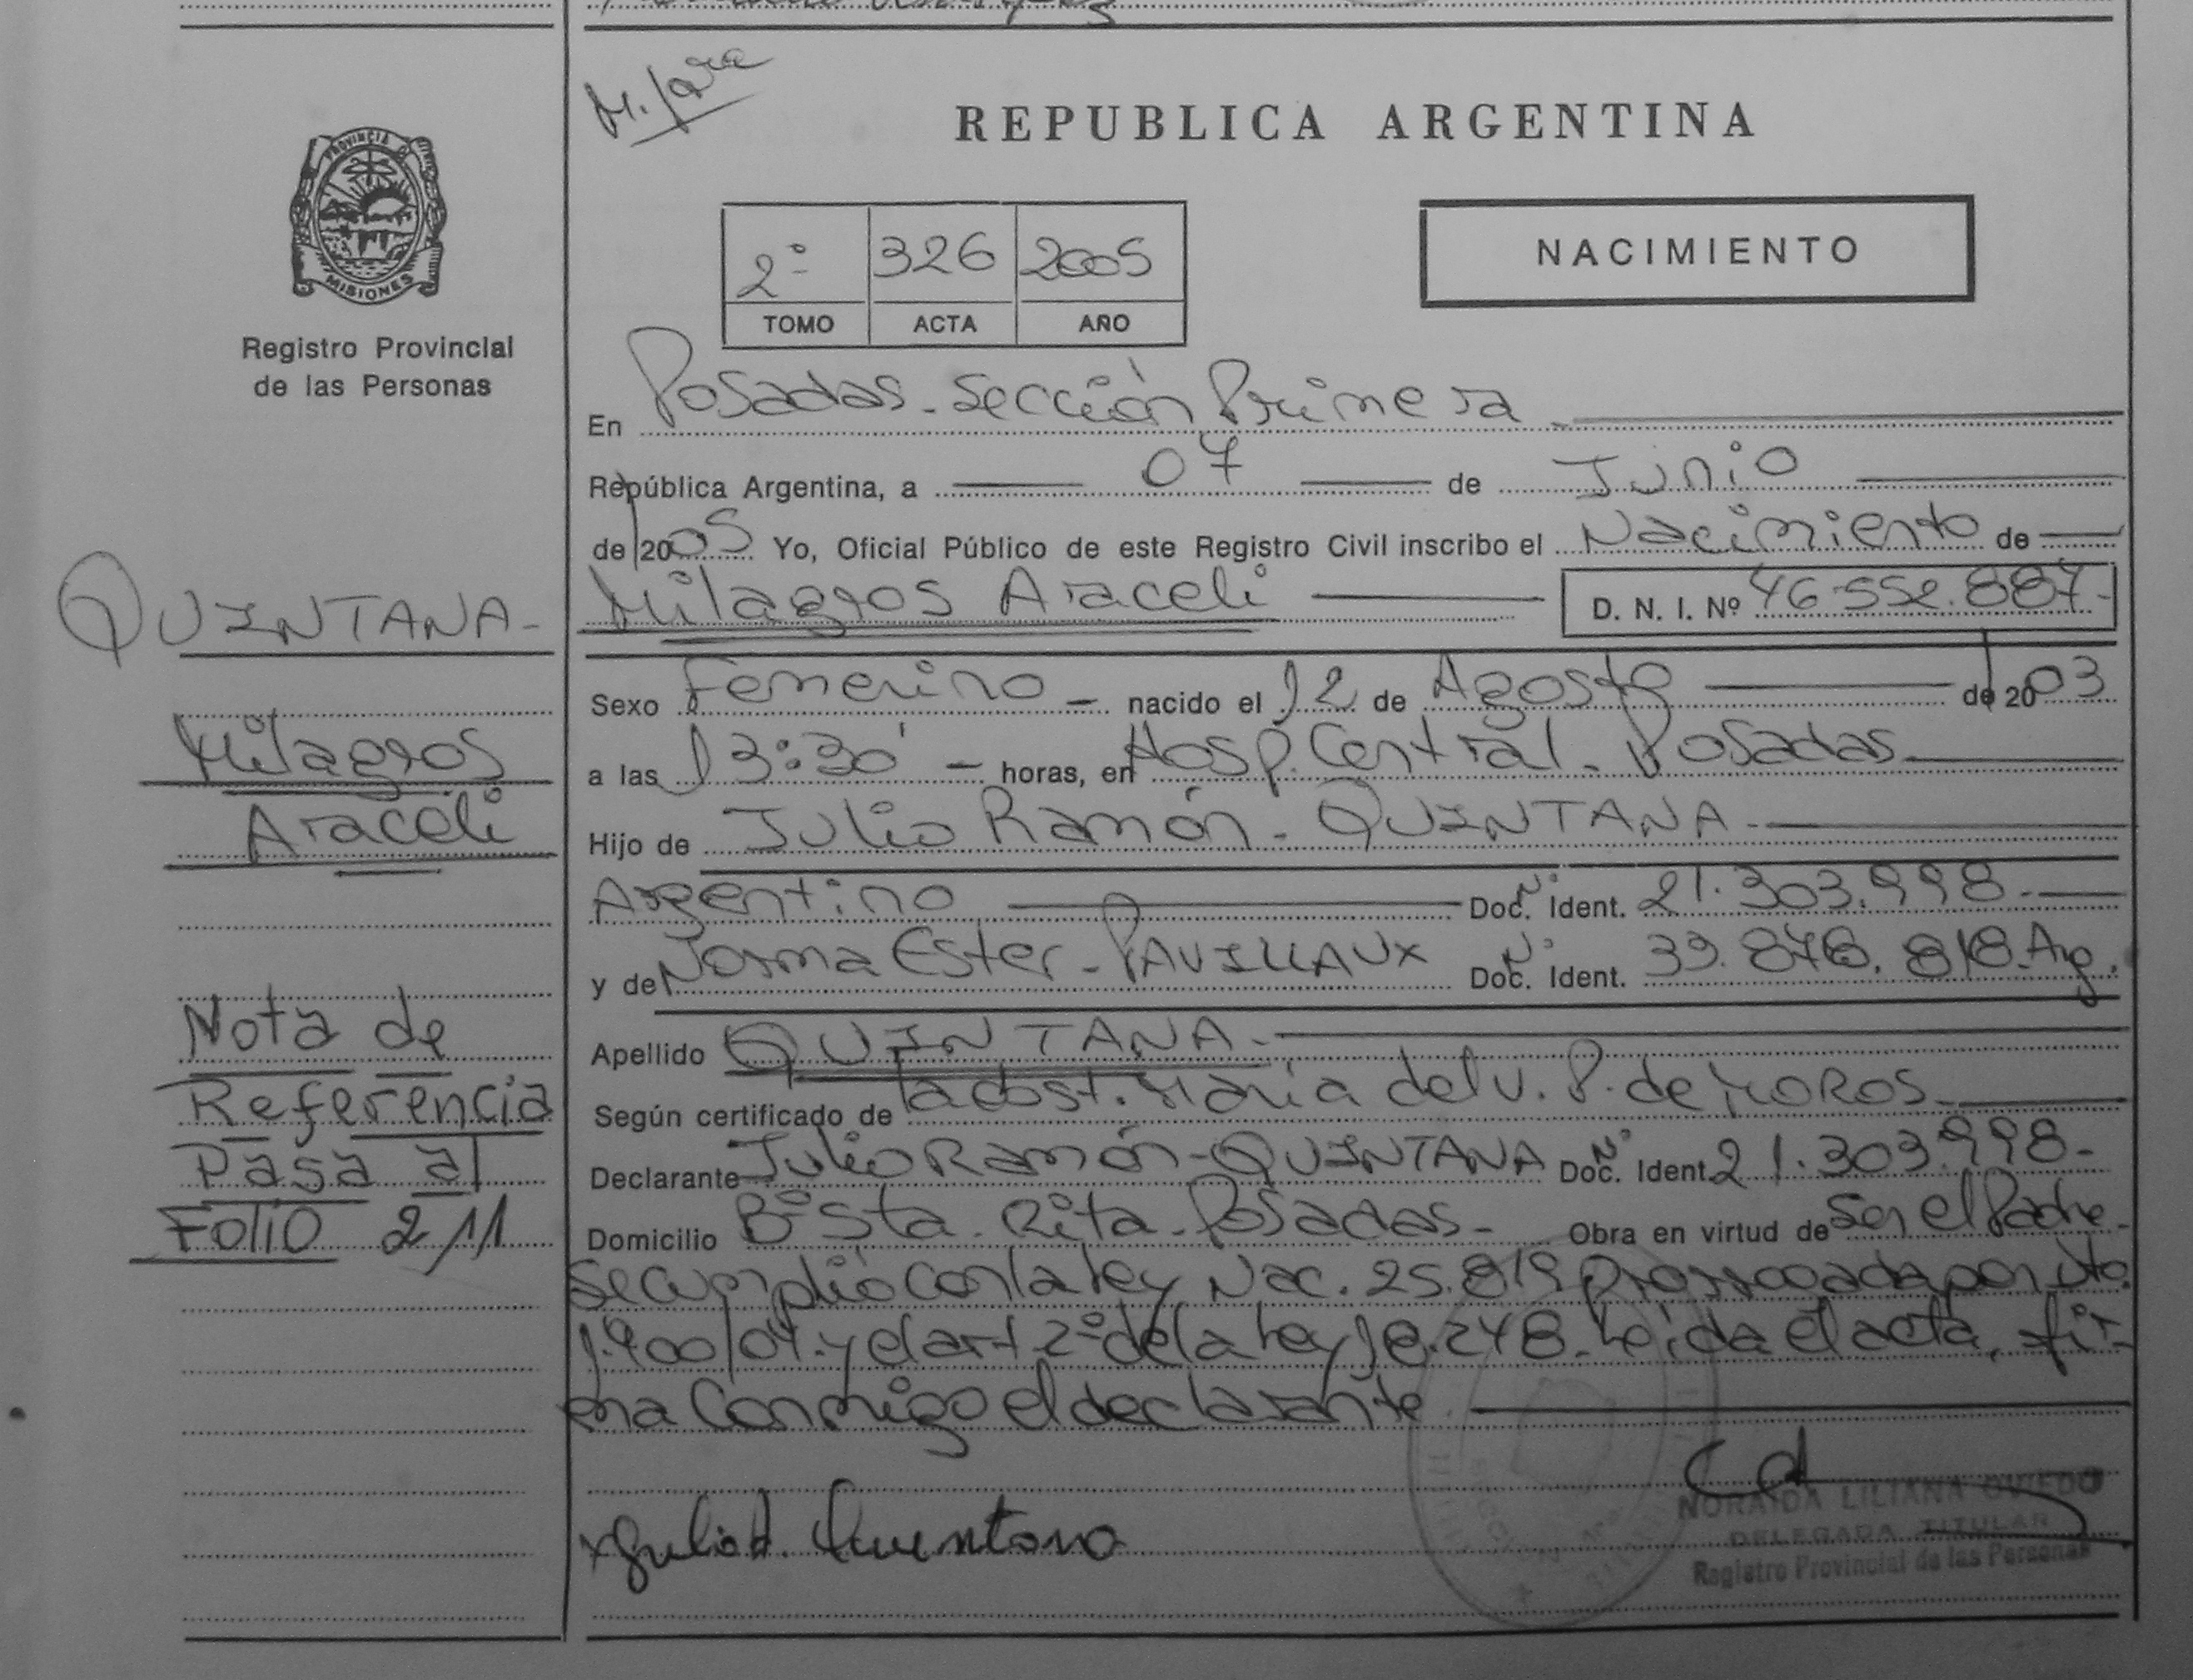 REPUBLICA ARGENTINA
PROVINCIA DE
MISIONES
Registro Provincial
de las Personas
2º 326 2005
TOMO ACTA AÑO
NACIMIENTO
En Posadas - Sección Primera
República Argentina, a 07 de Junio
de 2005 Yo, Oficial Público de este Registro Civil inscribo el Nacimiento de
Milagros Araceli D. N. I. Nº 46.552.887-
Sexo Femenino - nacido el 12 de Agosto de 2003
a las 13:30' - horas, en Hosp. Central - Posadas
Hijo de Julio Ramón - QUINTANA -
Argentino Nº Doc. Ident. 21.303.998-
y de Norma Ester - PAVILLAUX Nº Doc. Ident. 39.876.818. Arg.
Apellido QUINTANA -
Según certificado de la obst. María del V. P. de MOROS
Declarante Julio Ramón - QUINTANA Nº Doc. Ident. 21.303.998-
Domicilio Bº Sta. Rita - Posadas - Obra en virtud de Ser el Padre -
Se cumplió con la Ley Nac. 25.819 por Dto.
1.400/04 y el art 2º de la Ley 18.248. Leída el acta, fir-
ma conmigo el declarante
QUINTANA -
Milagros
Araceli
Nota de
Referencia
Pasa al
Folio 211
Julio R. Quintana
NORAIDA LILIANA OVIEDO
DELEGADA TITULAR
Registro Provincial de las Personas